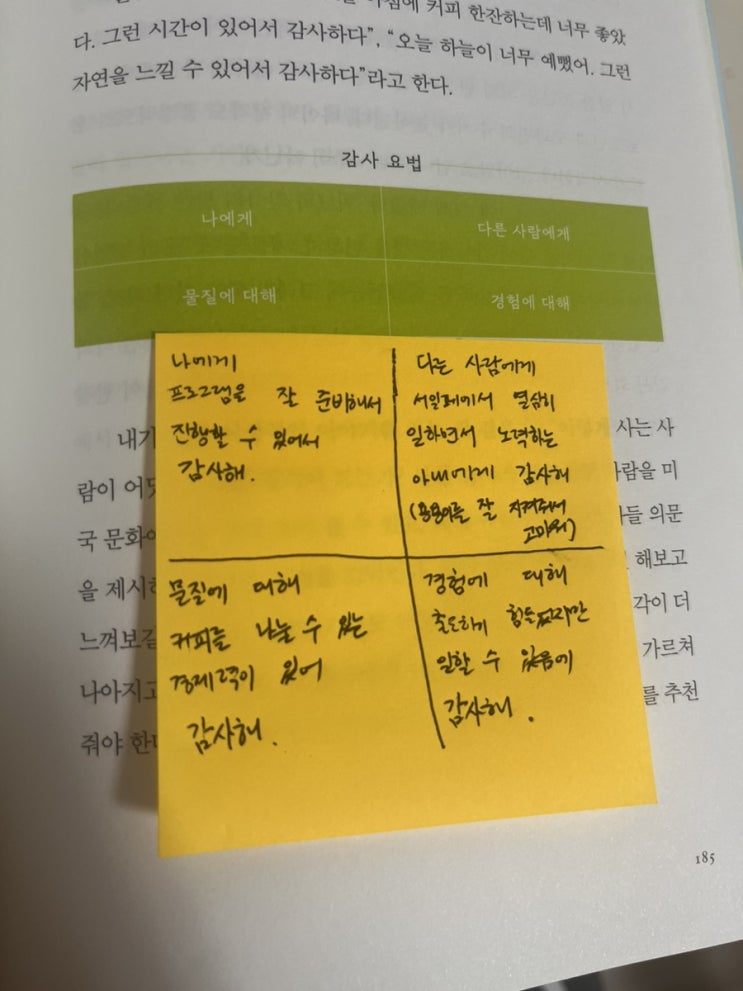 아침에 커피 한잔하는데 너무 좋았
다. 그런 시간이 있어서 감사하다”, “오늘 하늘이 너무 예뻤어. 그런
자연을 느낄 수 있어서 감사하다”라고 한다.
감사 요법
나에게 다른 사람에게
물질에 대해 경험에 대해
나에게
프로그램을 잘 준비해서
진행할 수 있어서
감사해.
다른 사람에게
열심히
일하면서 노력하는
아내에게 감사해
잘 지켜줘서
고마워)
물질에 대해
커피를 나눌 수 있는
경제력이 있어
감사해.
경험에 대해
출도하기 힘들었지만
일할 수 있음에
감사해.
내가 사는 사
람이 사람을 미
국 문화 들 의문
을 제시 해보고
느껴보길 각이 더
나아지고 가르쳐
줘야 한 를 추천
185